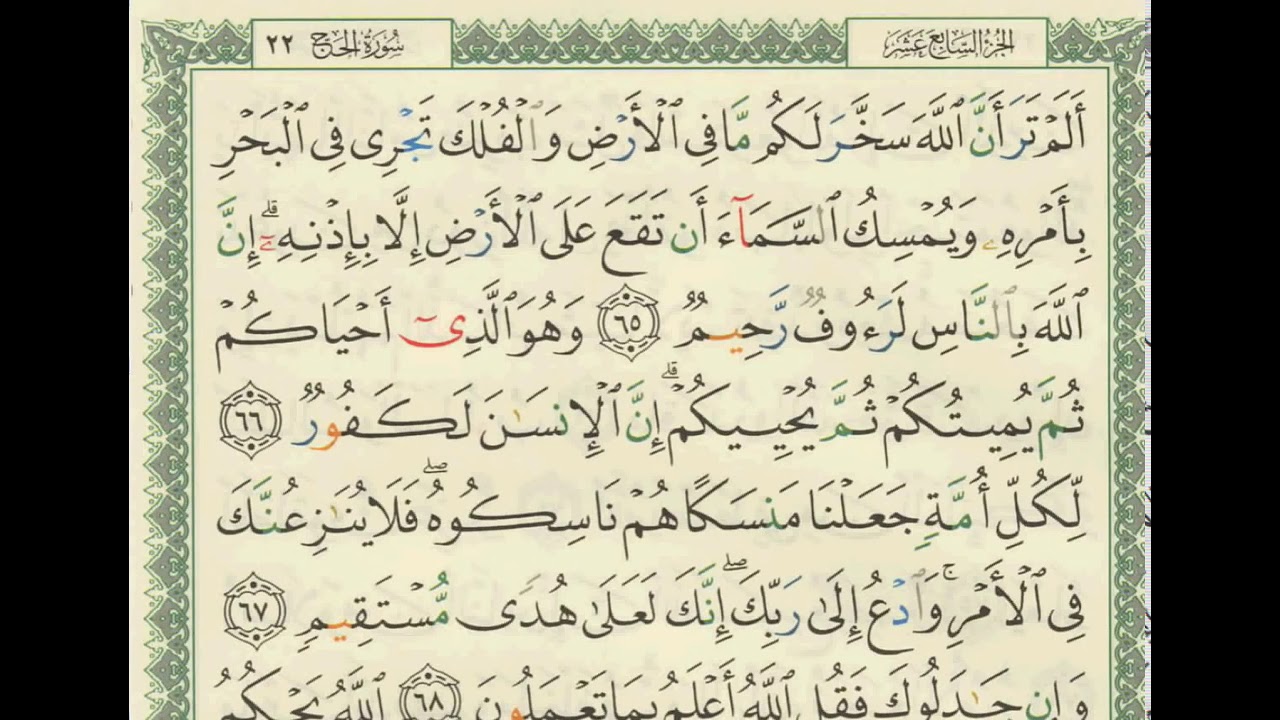 الجزء السابع عشر
سورة الحج ٢٢
أَلَمْ تَرَ أَنَّ ٱللَّهَ سَخَّرَ لَكُم مَّا فِى ٱلْأَرْضِ وَٱلْفُلْكَ تَجْرِى فِى ٱلْبَحْرِ
بِأَمْرِهِۦ وَيُمْسِكُ ٱلسَّمَآءَ أَن تَقَعَ عَلَى ٱلْأَرْضِ إِلَّا بِإِذْنِهِۦٓ ۗ إِنَّ
ٱللَّهَ بِٱلنَّاسِ لَرَءُوفٌ رَّحِيمٌ ٦٥ وَهُوَ ٱلَّذِىٓ أَحْيَاكُمْ
ثُمَّ يُمِيتُكُمْ ثُمَّ يُحْيِيكُمْ ۗ إِنَّ ٱلْإِنسَٰنَ لَكَفُورٌ ٦٦
لِّكُلِّ أُمَّةٍ جَعَلْنَا مَنسَكًا هُمْ نَاسِكُوهُ ۖ فَلَا يُنَٰزِعُنَّكَ
فِى ٱلْأَمْرِ ۚ وَٱدْعُ إِلَىٰ رَبِّكَ ۖ إِنَّكَ لَعَلَىٰ هُدًى مُّسْتَقِيمٍ ٦٧
وَإِن جَٰدَلُوكَ فَقُلِ ٱللَّهُ أَعْلَمُ بِمَا تَعْمَلُونَ ٦٨ ٱللَّهُ يَحْكُمُ